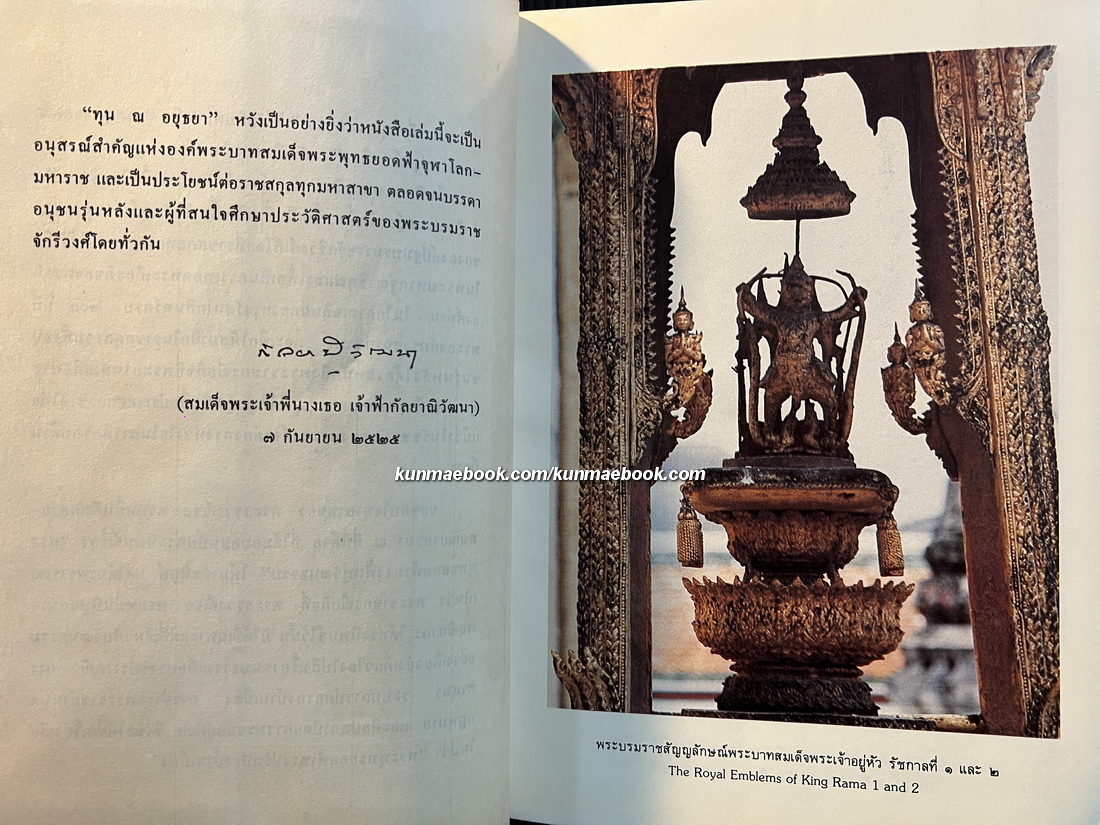 “ทุน ณ อยุธยา” หวังเป็นอย่างยิ่งว่าหนังสือเล่มนี้จะเป็น
อนุสรณ์สำคัญแห่งองค์พระบาทสมเด็จพระพุทธยอดฟ้าจุฬาโลก–
มหาราช และเป็นประโยชน์ต่อราชสกุลทุกมหาสาขา ตลอดจนบรรดา
อนุชนรุ่นหลังและผู้ที่สนใจศึกษาประวัติศาสตร์ของพระบรมราช
จักรีวงศ์โดยทั่วกัน
(สมเด็จพระเจ้าพี่นางเธอ เจ้าฟ้ากัลยาณิวัฒนา)
๗ กันยายน ๒๕๒๕
kunmaebook.com/kunmaebook.com
พระบรมราชสัญญลักษณ์พระบาทสมเด็จพระเจ้าอยู่หัว รัชกาลที่ ๑ และ ๒
The Royal Emblems of King Rama 1 and 2